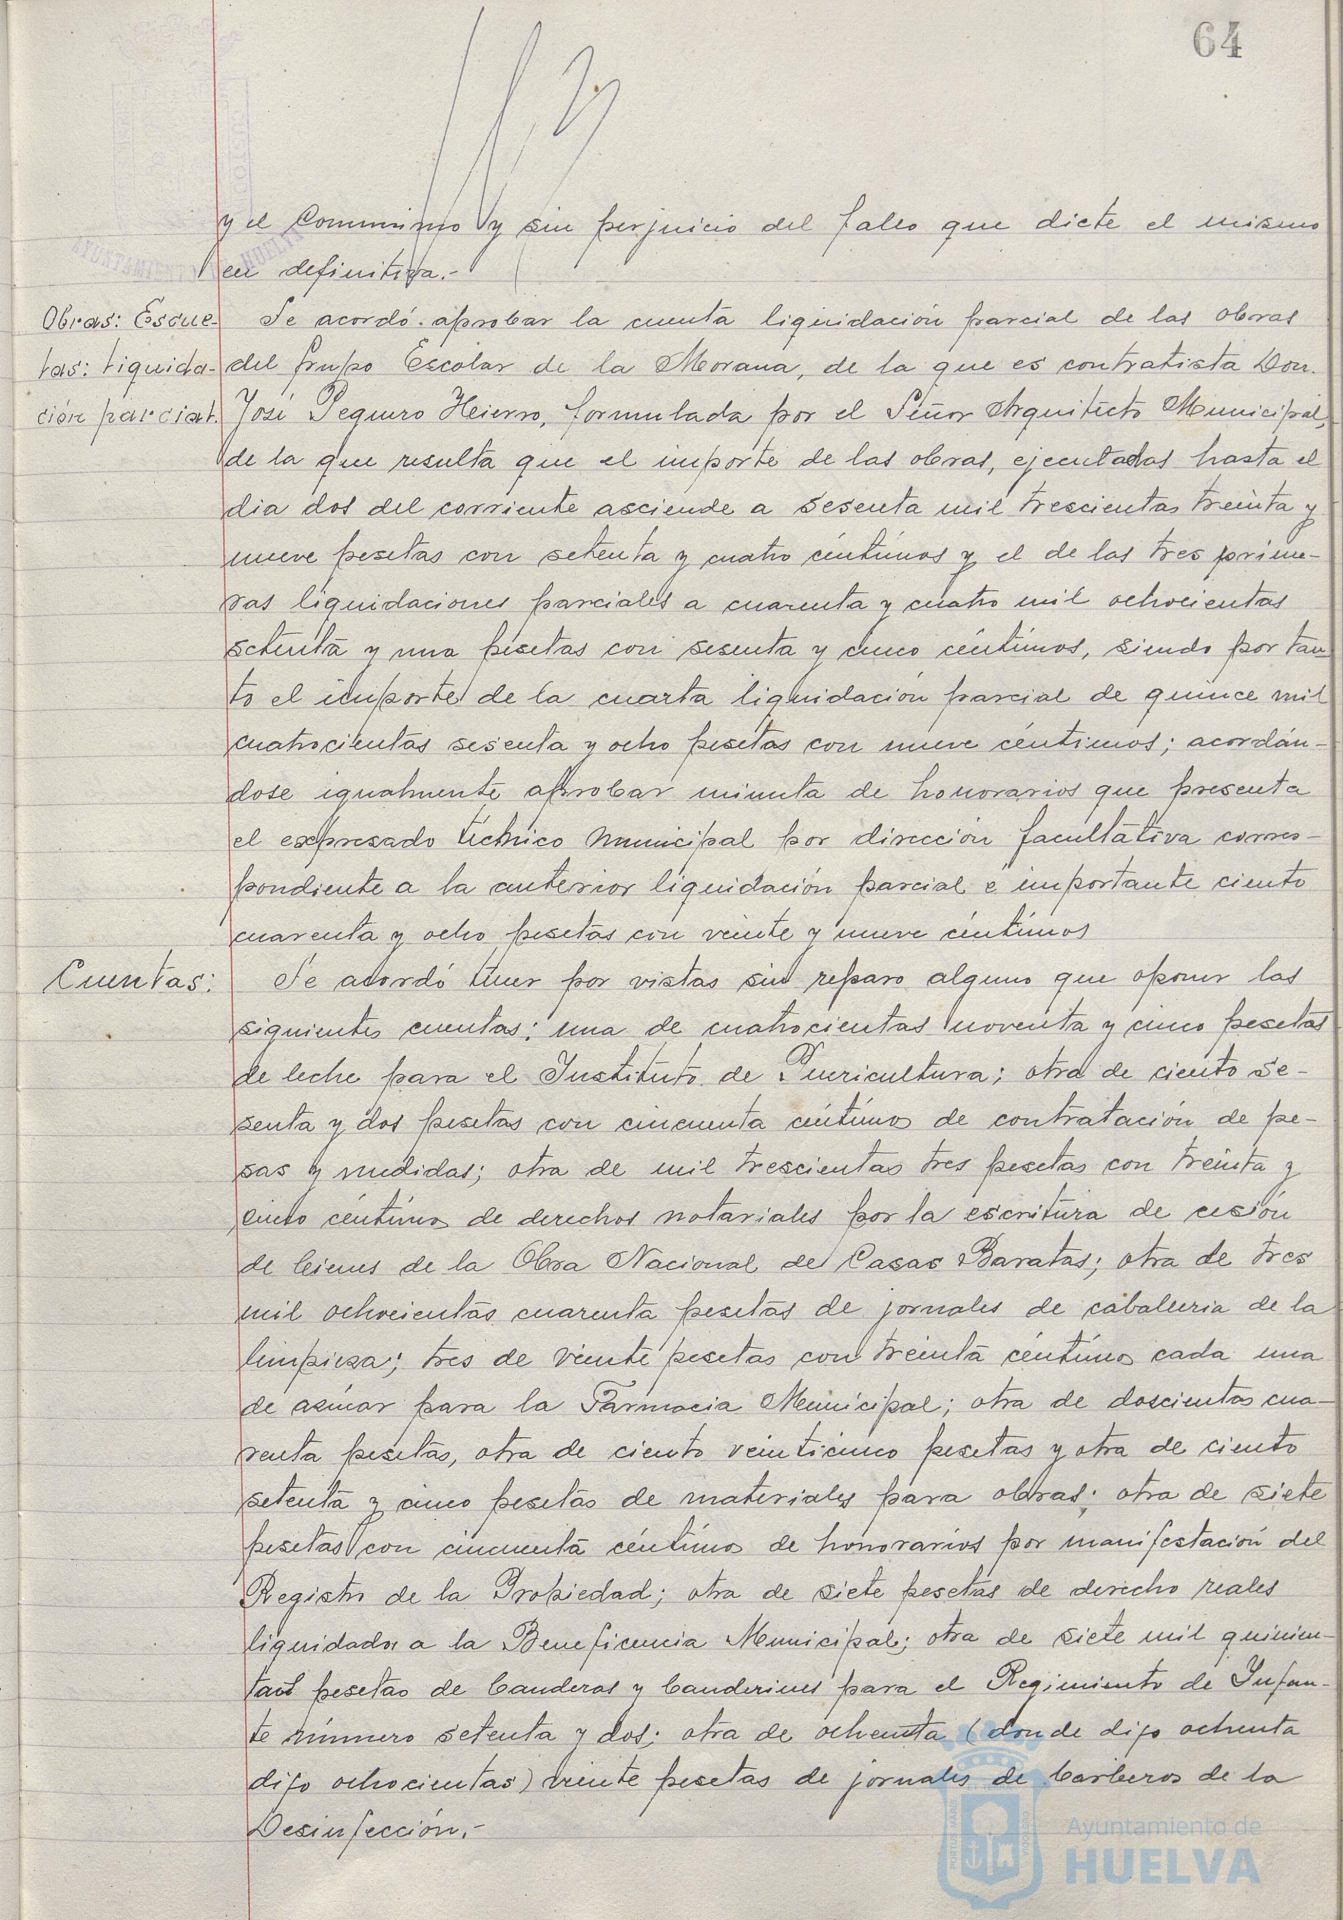 64
y el Communimo y sin perjuicio del fallo que dicte el mismo
en definitiva.-
Obras: Escue-
las: Liquida-
ción parcial.
Se acordó aprobar la cuenta liquidación parcial de las obras
del Grupo Escolar de la Morana, de la que es contratista Don
José Peguero Hierro, formulada por el Señor Arquitecto Municipal,
de la que resulta que el importe de las obras, ejecutadas hasta el
dia dos del corriente asciende a sesenta mil trescientas treinta y
nueve pesetas con setenta y cuatro céntimos y el de las tres prime-
ras liquidaciones parciales a cuarenta y cuatro mil ochocientas
setenta y una pesetas con sesenta y cinco céntimos, siendo por tan-
to el importe de la cuarta liquidación parcial de quince mil
cuatrocientas sesenta y ocho pesetas con nueve céntimos; acordán-
dose igualmente aprobar minuta de honorarios que presenta
el expresado técnico municipal por dirección facultativa corres-
pondiente a la anterior liquidación parcial e importante ciento
cuarenta y ocho pesetas con veinte y nueve céntimos
Cuentas:
Se acordó tener por vistas sin reparo alguno que oponer las
siguientes cuentas: una de cuatrocientas noventa y cinco pesetas
de leche para el Instituto de Puericultura; otra de ciento se-
senta y dos pesetas con cincuenta céntimos de contratación de pe-
sas y medidas; otra de mil trescientas tres pesetas con treinta y
cinco céntimos de derechos notariales por la escritura de cesión
de bienes de la Obra Nacional de Casas Baratas; otra de tres
mil ochocientas cuarenta pesetas de jornales de caballeria de la
limpieza; tres de veinte pesetas con treinta céntimos cada una
de azúcar para la Farmacia Municipal; otra de doscientas cua-
renta pesetas, otra de ciento veinticinco pesetas y otra de ciento
setenta y cinco pesetas de materiales para obras; otra de siete
pesetas con cincuenta céntimos de honorarios por manifestación del
Registro de la Propiedad; otra de siete pesetas de derecho reales
liquidados a la Beneficencia Municipal; otra de siete mil quinien-
tas pesetas de banderas y banderines para el Regimiento de Infan-
te número setenta y dos; otra de ochenta (donde dijo ochenta
dijo ochocientas) veinte pesetas de jornales de barberos de la
Desinfección.-
AYUNTAMIENTO HUELVA
Ayuntamiento de
HUELVA